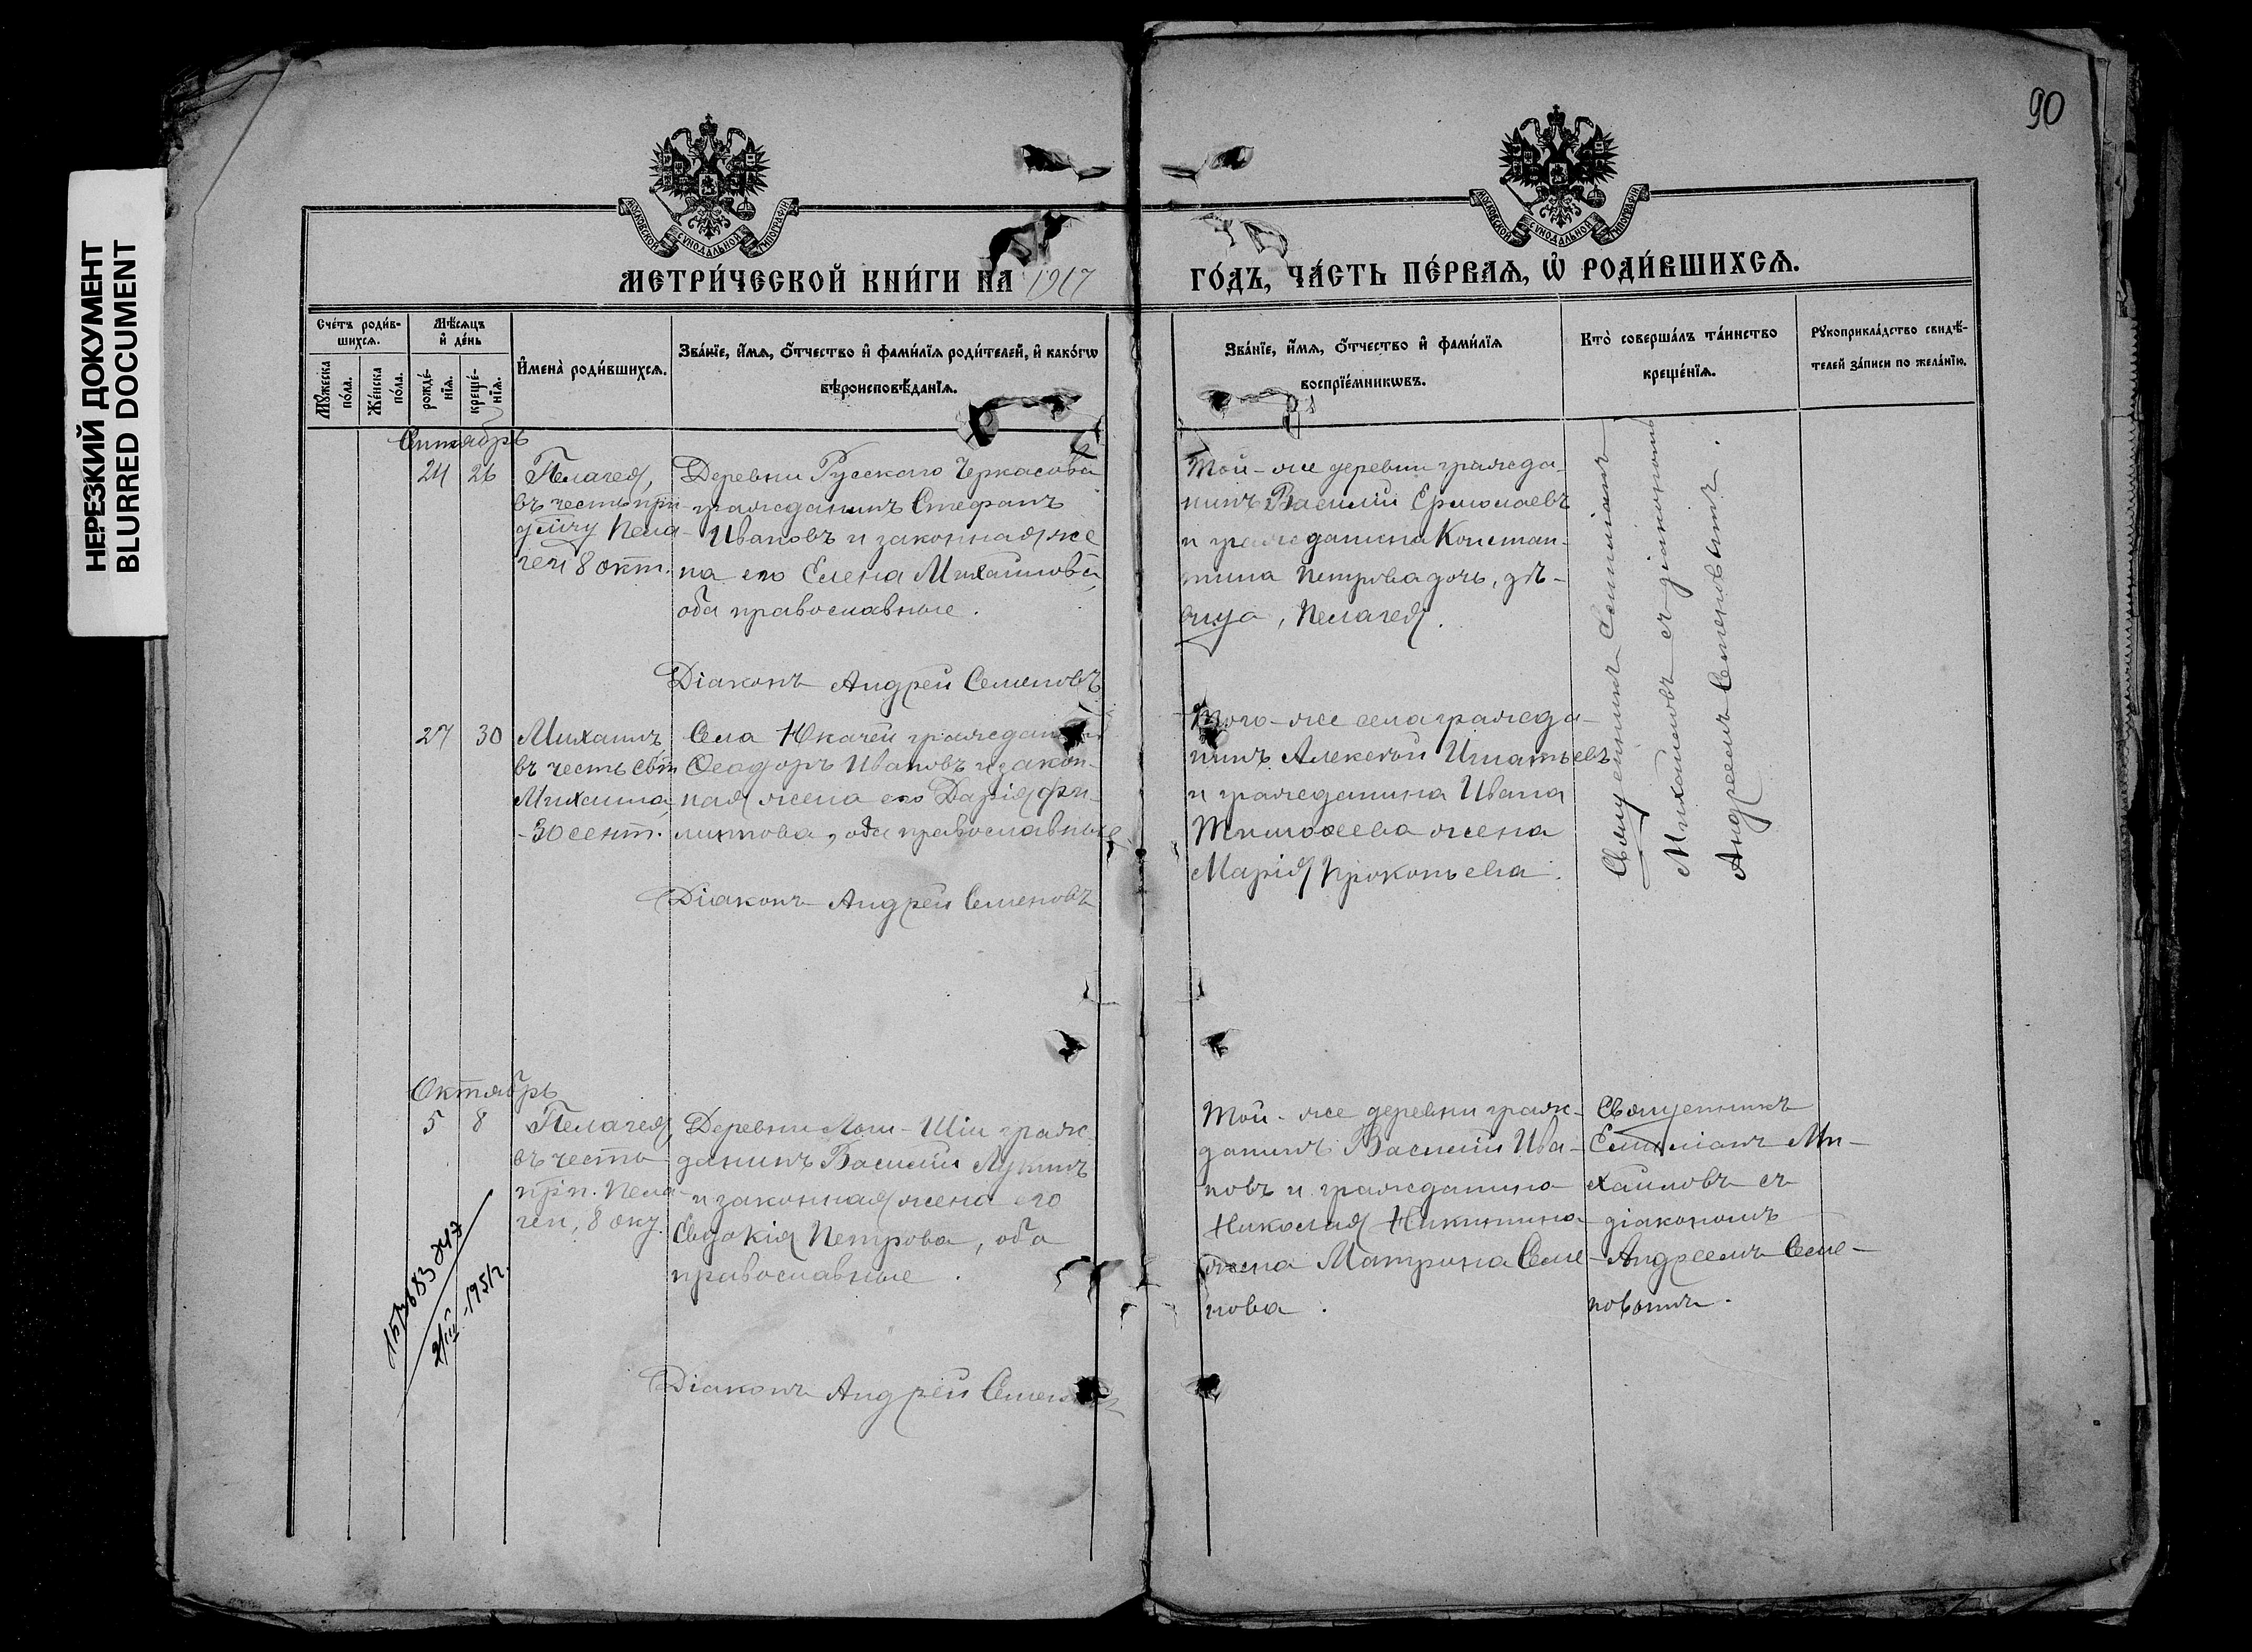 90
НЕРЕЗКИЙ ДОКУМЕНТ
BLURRED DOCUMENT
МОСКОВСКОЙ СУНОДАЛЬНОЙ ТИПОГРАФІИ
МОСКОВСКОЙ СУНОДАЛЬНОЙ ТИПОГРАФІИ
МЕТРИ́ЧЕСКОЙ КНИ́ГИ НА 1917
ГО́ДЪ, ЧА́СТЬ ПЕ́РВАѦ, Ѽ РОДИ́ВШИХСѦ.
Сче́тъ роди́в-
шихсѧ.
Мꙋ́жеска
по́ла.
Же́нска
по́ла.
Мѣ́сѧцъ
и҆ де́нь
рожде́-
нїѧ.
креще́-
нїѧ.
И҆мена̀ роди́вшихсѧ.
Зва́нїе, и҆́мѧ, ѻ҆́тчество и҆ фами́лїѧ роди́телей, и҆ како́гѡ
вѣроисповѣ́данїѧ.
Зва́нїе, и҆́мѧ, ѻ҆́тчество и҆ фами́лїѧ
воспрїе́мникѡвъ.
Кто̀ соверша́лъ та́инство
креще́нїѧ.
Рꙋкоприкла́дство свидѣ́-
телей за́писи по жела́нїю.
Сентябрь
24 26 Пелагея,
въ честь прп
дѣвицу Пела-
геи 8 окт.
Деревни Русского Черкасова
гражданинъ Стефанъ
Ивановъ и законная же
на его Елена Михайлова,
оба православные.
Діаконъ Андрей Семеновъ
Той-же деревни гражда-
нинъ Василій Ермолаевъ
и гражданина Констан-
тина Петрова дочь, дѣ-
вица, Пелагея.
Священникъ Емиліанъ
Михайловъ съ діакономъ
Андреемъ Семеновымъ.
27 30 Михаилъ,
въ честь свт
Михаила
-30 сент.
Села Юкачей гражданинъ
Ѳеодоръ Ивановъ и закон-
ная жена его Дарія Фи-
липпова, оба православные
Діаконъ Андрей Семеновъ
Того-же села гражда-
нинъ Алексѣй Игнатьевъ
и гражданина Ивана
Тимоѳеева жена
Марія Прокопьева.
Октябрь
5 8 Пелагея,
въ честь
прп. Пела-
геи, 8 окт.
Деревни Лош-Шіи граж-
данинъ Василій Лукинъ
и законная жена его
Евдокія Петрова, оба
православные.
Діаконъ Андрей Семеновъ
Той-же деревни граж-
данинъ Василій Ива-
новъ и гражданина
Николая Никитина
жена Матрона Семе-
нова.
Священникъ
Емиліанъ Ми-
хайловъ съ
діакономъ
Андреемъ Семе-
новымъ.
2/III-1951г.